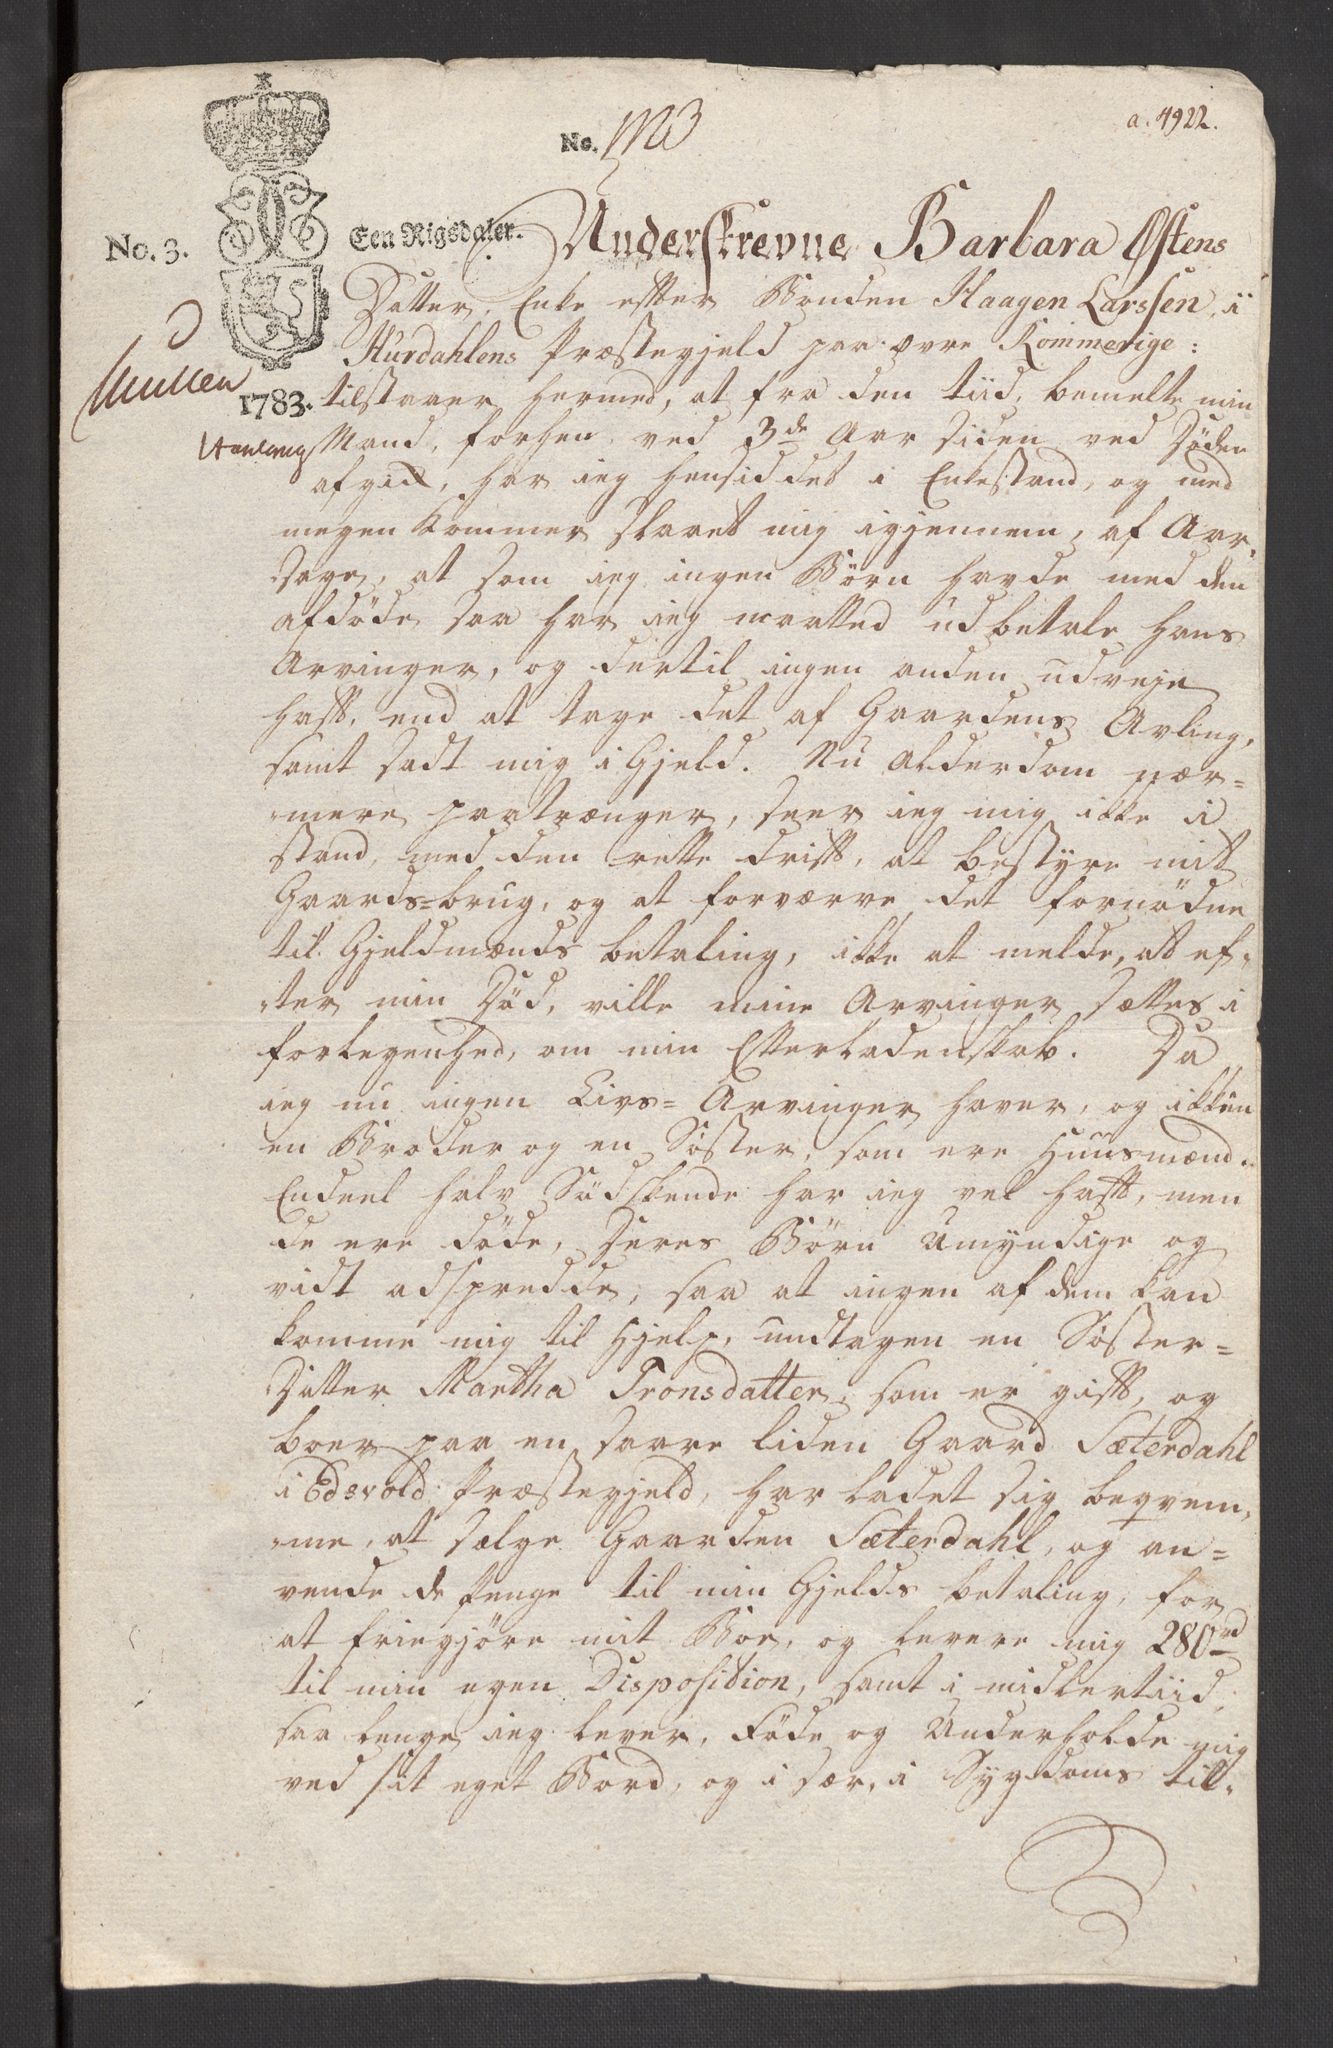 a. 4922.
No.
No. 3.
Een Rigsdaler.
1783.
Underskrevne Barbara Østens
Datter, Enke efter Bonden Haagen Larssen, i
Hurdahlens Præstegjeld paa øvre Rommerige:
tilstaaer hermed, at fra den tiid, bemelte min
Mand, forhen ved 3de Aar siden ved Døden
afgik, har ieg hensiddet i Enkestand, og med
megen Kommer slaaet mig igjennem, af Aar-
sage, at som ieg ingen Børn havde med den
afdøde, saa har ieg maatted udbetale hans
Arvinger, og dertil ingen anden udveje
hafft, end at tage det af Gaardens Avling,
samt sadt mig i Gjeld. Nu Alderdom nær=
mere paatrænger, seer ieg mig ikke i
stand, med den rette drifft, at bestyre mit
Gaards=brug, og at forværve det fornødne
til Gjeldmænds betaling, ikke at melde, at ef-
ter min Død, ville mine Arvinger sættes i
forlegenhed, om min Efterladenskab. Da
ieg nu ingen Livs=Arvinger haver, og ikkun
en Broder og en Søster, som ere Huusmænd.
Endeel halv Sødskende har ieg vel hafft, men
de ere døde, Deres Børn Umyndige og
vidt adspredde, saa at ingen af dem kan
komme mig til Hjelp, undtagen en Søster=
Datter Martha Tronsdatter, som er gifft, og
boer paa en saare liden Gaard Sæterdahl
i Edsvold Præstegjeld, har ladet sig beqvem-
me, at sælge Gaarden Sæterdahl, og an=
vende de Penge til min Gjelds betaling, for
at friegjøre mit Boe, og levere mig 280rd
til min egen Disposition, samt i midlertiid,
saa lenge ieg lever, Føde og Underholde mig
ved sit eget Bord, og i sær, i Sygdoms til-